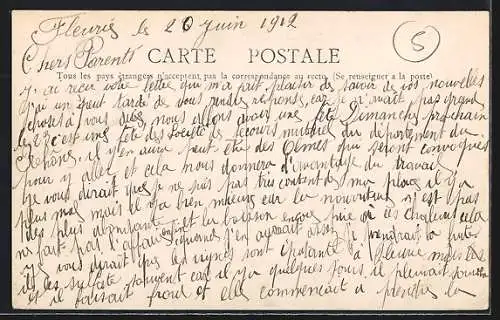 Fleurie le 20 juin 1912
5
Chers Parents
CARTE POSTALE
Tous les pays étrangers n'acceptent pas la correspondance au recto. (Se renseigner à la poste)
J'ai reçu votre lettre qui m'a fait plaisir de savoir de vos nouvelles
j'ai un peut tardé de vous rendre reponse, car je n'avait pas grand
chose à vous dire nous allons avoir une fête Dimanche prochain
le 23 c'est une fête des société de secours mutuel du département du
Rhône, il y en aura peut être des qui seront convoqués
pour y aller et cela nous donnera d'avantage du travail
je vous dirait que je ne suis pas très content de ma place il y a
plus mal mais il y a bien mieux car la nourriture n'est pas
des plus abondante et la boisson encore pire
fait pas l'affaire
je vous dirait que les vignes sont à Fleurie mais
il les sulfate souvent car il y a quelques jours il pleuvait
il faisait froid et elle commencait a prendre la